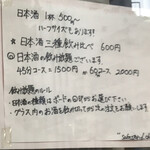 日本酒 1杯 500〜
ハーフサイズもあります!
★ 日本酒 三種飲み比べ 600円
☆ 日本酒の飲み放題ございます
45分コース=1500円 60分コース 2000円
飲み放題のルール
・日本酒の種類はボードの中からお選び下さい
・グラス内のお酒を飲み干してから次の注文をお願いします